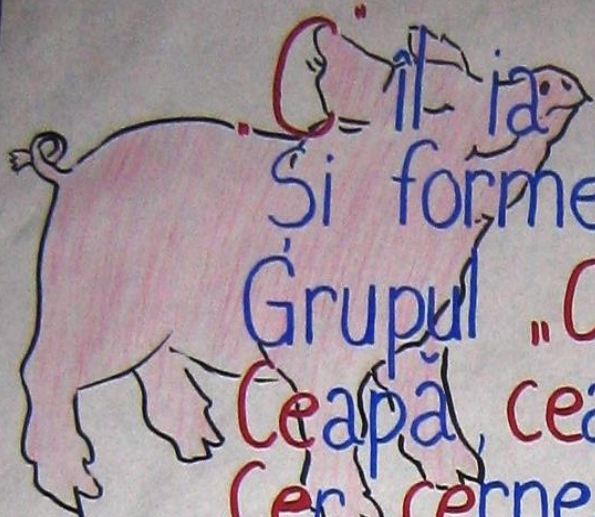 C îl ia
Și forme
Grupul „C
Ceapă, cea
Cer, cerne